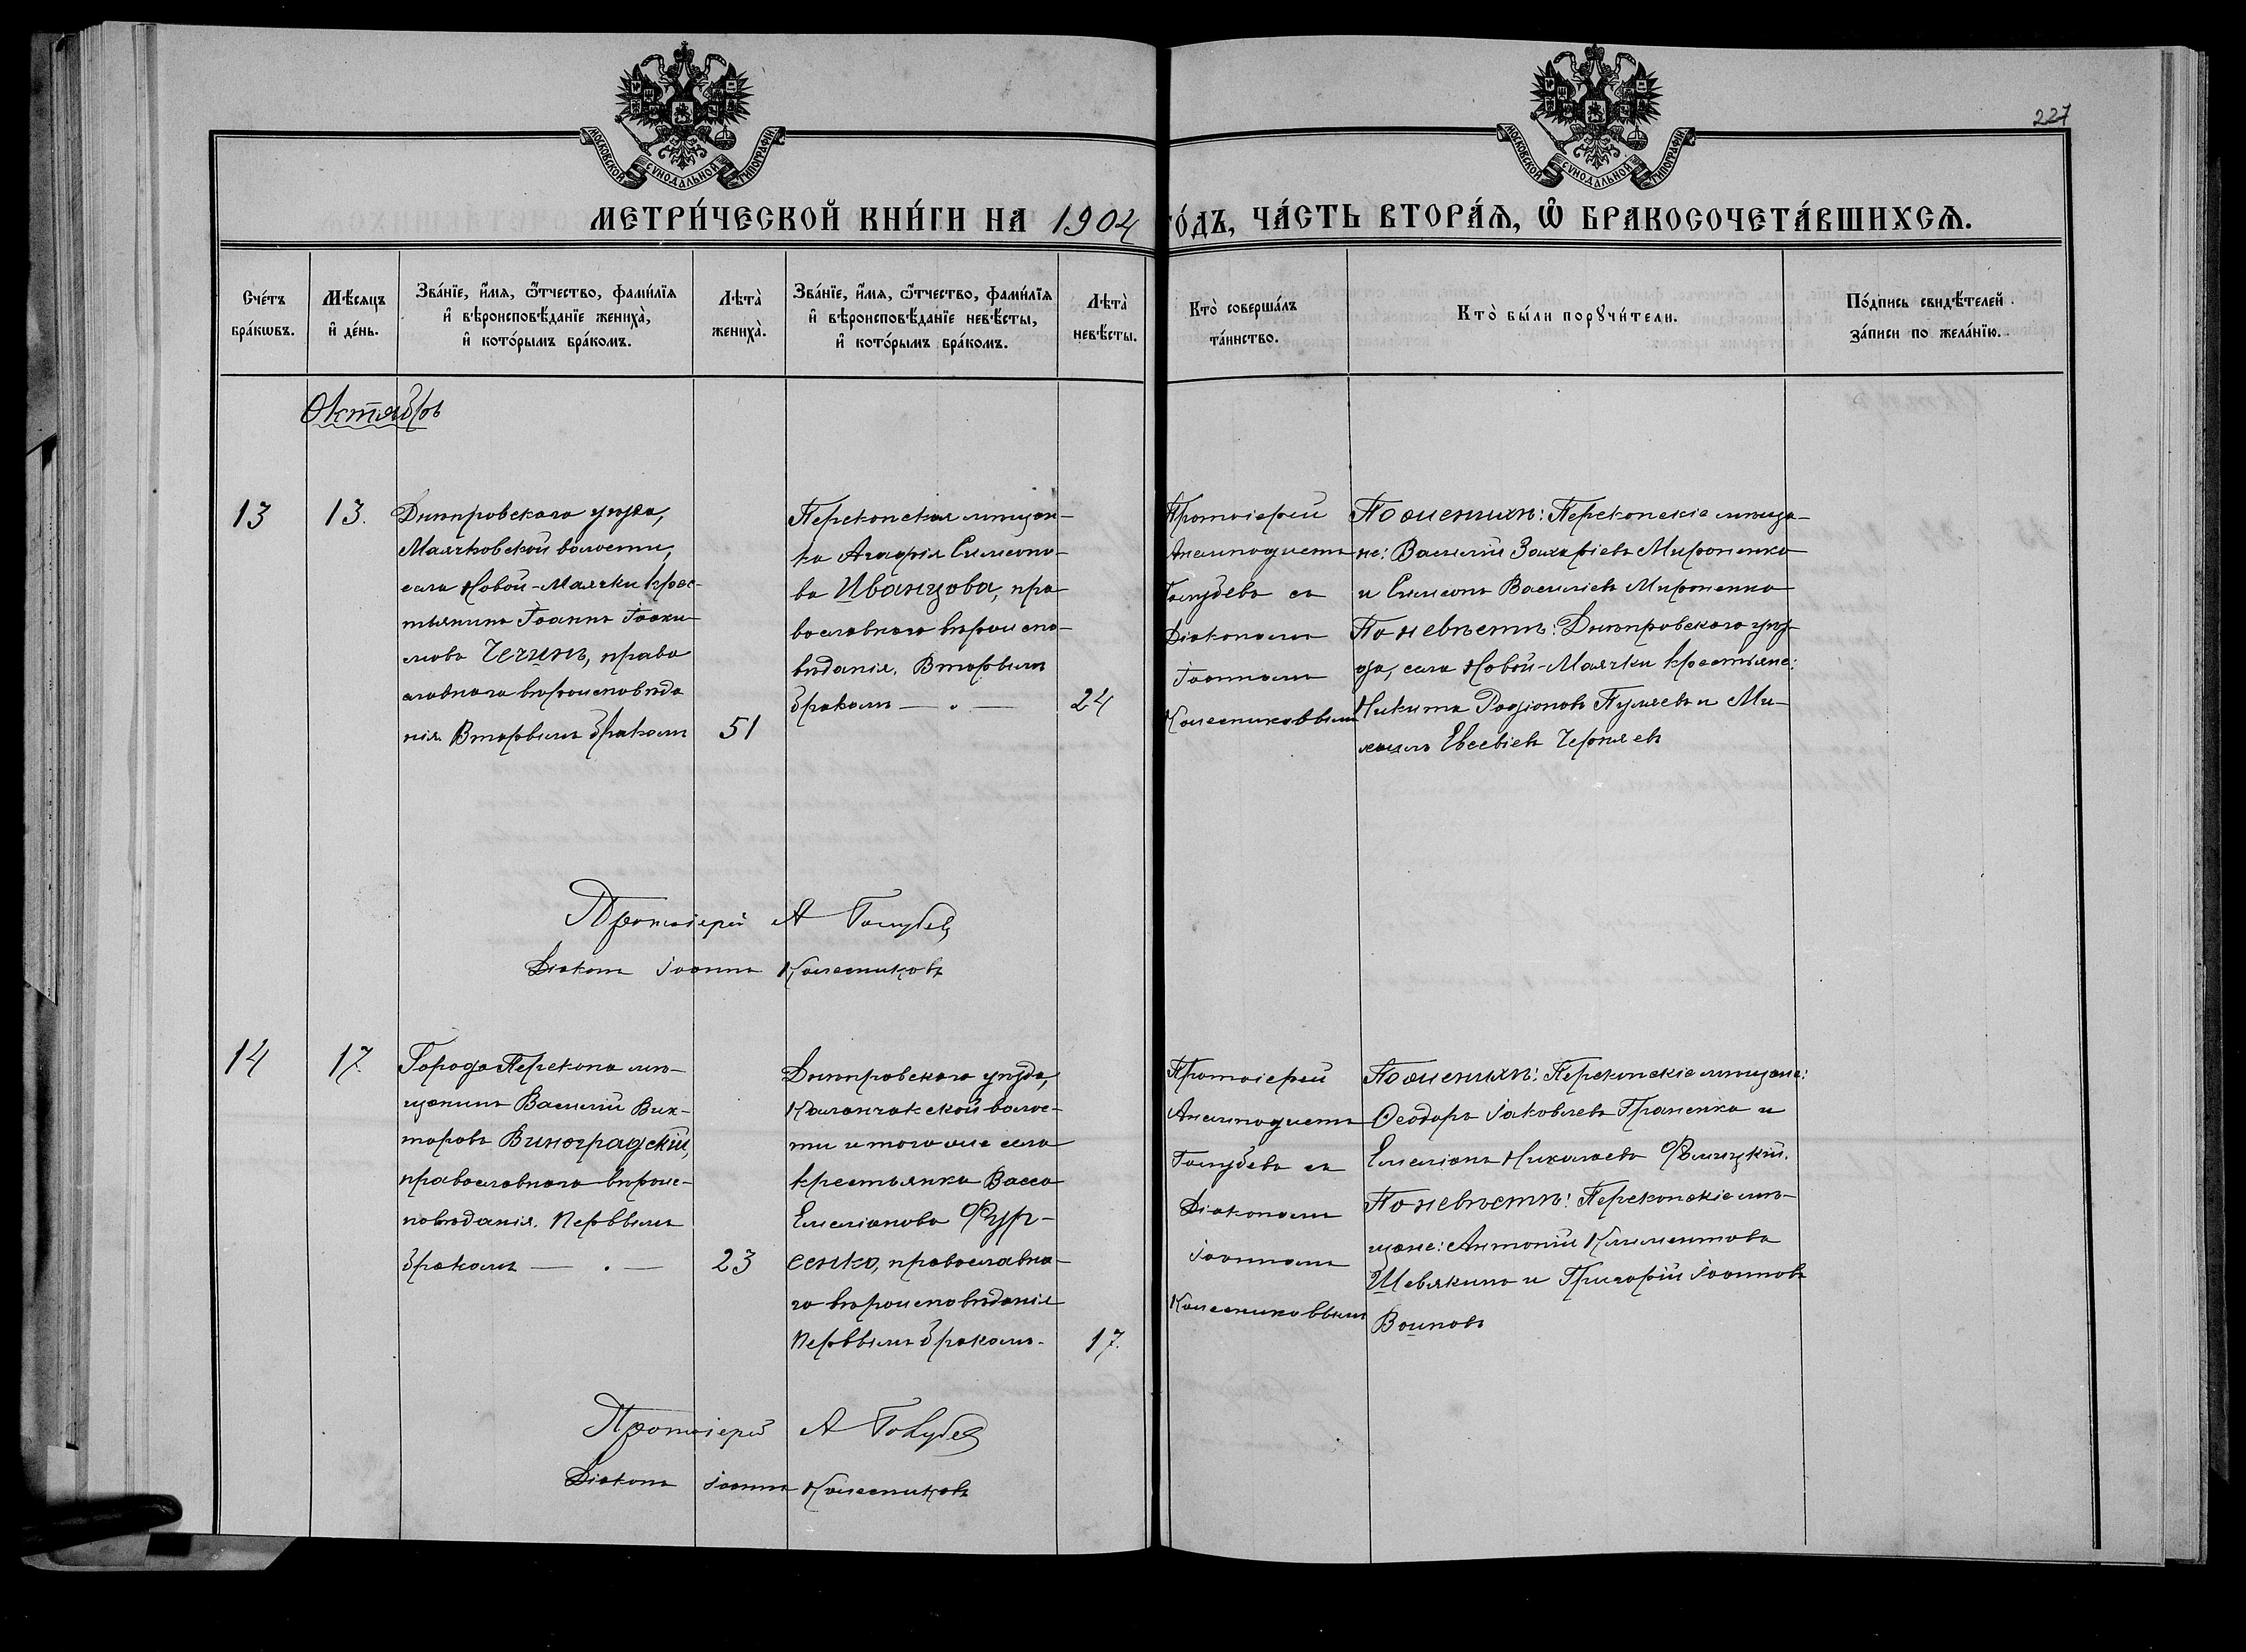 227
МОСКОВСКОЙ СУНОДАЛЬНОЙ ТИПОГРАФІИ
МОСКОВСКОЙ СУНОДАЛЬНОЙ ТИПОГРАФІИ
МЕТРИ́ЧЕСКОЙ КНИ́ГИ НА 1904 ГО́ДЪ, ЧА́СТЬ ВТОРА́Ѧ, Ѽ БРАКОСОЧЕТА́ВШИХСѦ.
Сче́тъ
бра́кѡвъ.
Мѣ́сяцъ
и҆ де́нь.
Зва́нїе, и҆́мя, ѻ҆́тчество, фами́лїя
и҆ вѣроисповѣ́данїе жениха̀,
и҆ кото́рымъ бра́комъ.
Лѣта̀
жениха̀.
Зва́нїе, и҆́мя, ѻ҆́тчество, фами́лїя
и҆ вѣроисповѣ́данїе невѣ́сты,
и҆ кото́рымъ бра́комъ.
Лѣта̀
невѣ́сты.
Кто̀ соверша́лъ
та́инство.
Кто̀ бы́ли порꙋчи́тели.
По́дпись свидѣ́телей
за́писи по жела́нїю.
Октябрь
13
13.
Днѣпровскаго уѣзда,
Маячковской волости,
села Новой-Маячки крес-
тьянинъ Іоаннъ Іоаки-
мовъ Чечинъ, право
славнаго вѣроисповѣда
нія. Вторымъ бракомъ
51
Перекопская мѣщан-
ка Агафія Симеоно-
ва Иванцова, пра
вославнаго вѣроиспо-
вѣданія. Вторымъ
бракомъ — . —
24
Протоіерей
Анемподистъ
Голубевъ съ
Діакономъ
Іоанномъ
Колесниковымъ
По женихѣ: Перекопскіе мѣща-
не: Василій Захаріевъ Мироненко
и Симеонъ Василіевъ Мироненко
По невѣстѣ: Днѣпровскаго уѣз-
да, села Новой-Маячки крестьяне:
Никита Родіоновъ Пуляевъ и Ми-
хаилъ Евсевіевъ Черняевъ
Протоіерей А Голубев
Діаконъ Іоаннъ Колесниковъ
14
17.
Города Перекопа мѣ-
щанинъ Василій Вик-
торовъ Виноградскій,
православнаго вѣроис-
повѣданія. Первымъ
бракомъ — . —
23
Днѣпровскаго уѣзда,
Каланчакской волос-
ти и того же села
крестьянка Васса
Емеліанова Фур-
сенко, православна-
го вѣроисповѣданія
Первымъ бракомъ.
17.
Протоіерей
Анемподистъ
Голубевъ съ
Діакономъ
Іоанномъ
Колесниковымъ
По женихѣ: Перекопскіе мѣщане:
Ѳеодоръ Іаковлевъ Граненко и
Емеліанъ Николаевъ
По невѣстѣ: Перекопскіе мѣ-
щане: Антоній Климентовъ
Шевякинъ и Григорій Іоанновъ
Воиновъ
Протоіерей А Голубев
Діаконъ Іоаннъ Колесниковъ